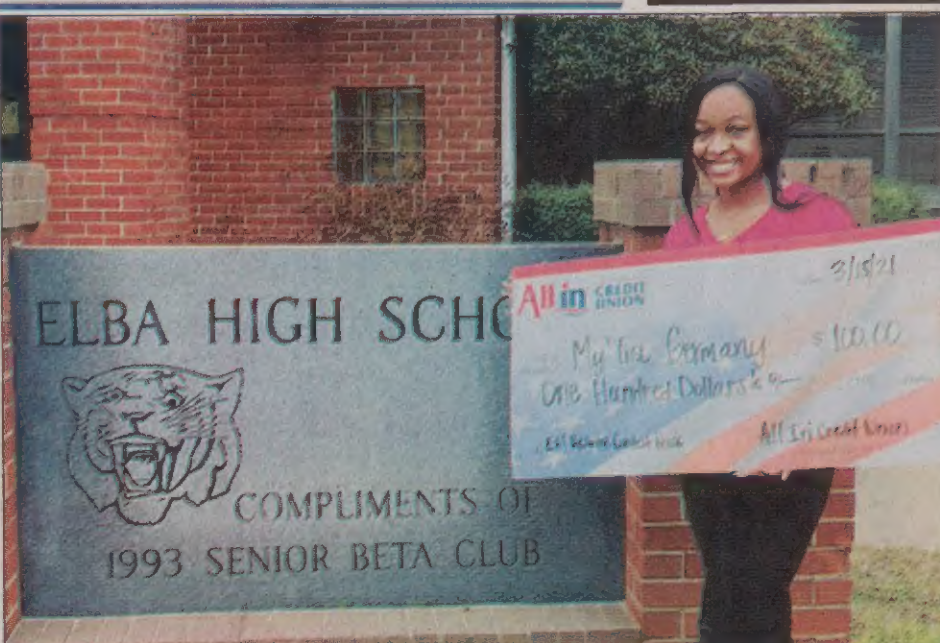 ELBA HIGH SCHO
COMPLIMENTS OF
1993 SENIOR BETA CLUB
All in CREDIT UNION
3/15/21
Germany $ 100.00
One Hundred Dollars
All In Credit Union